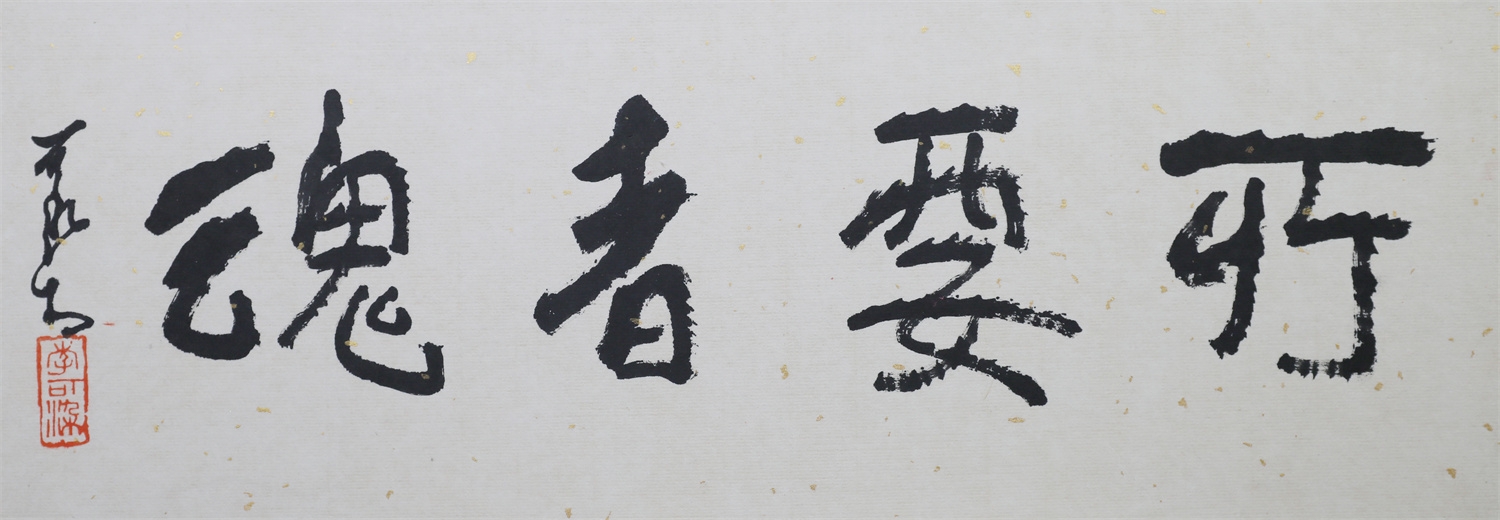 所要者魂
可染
李可染